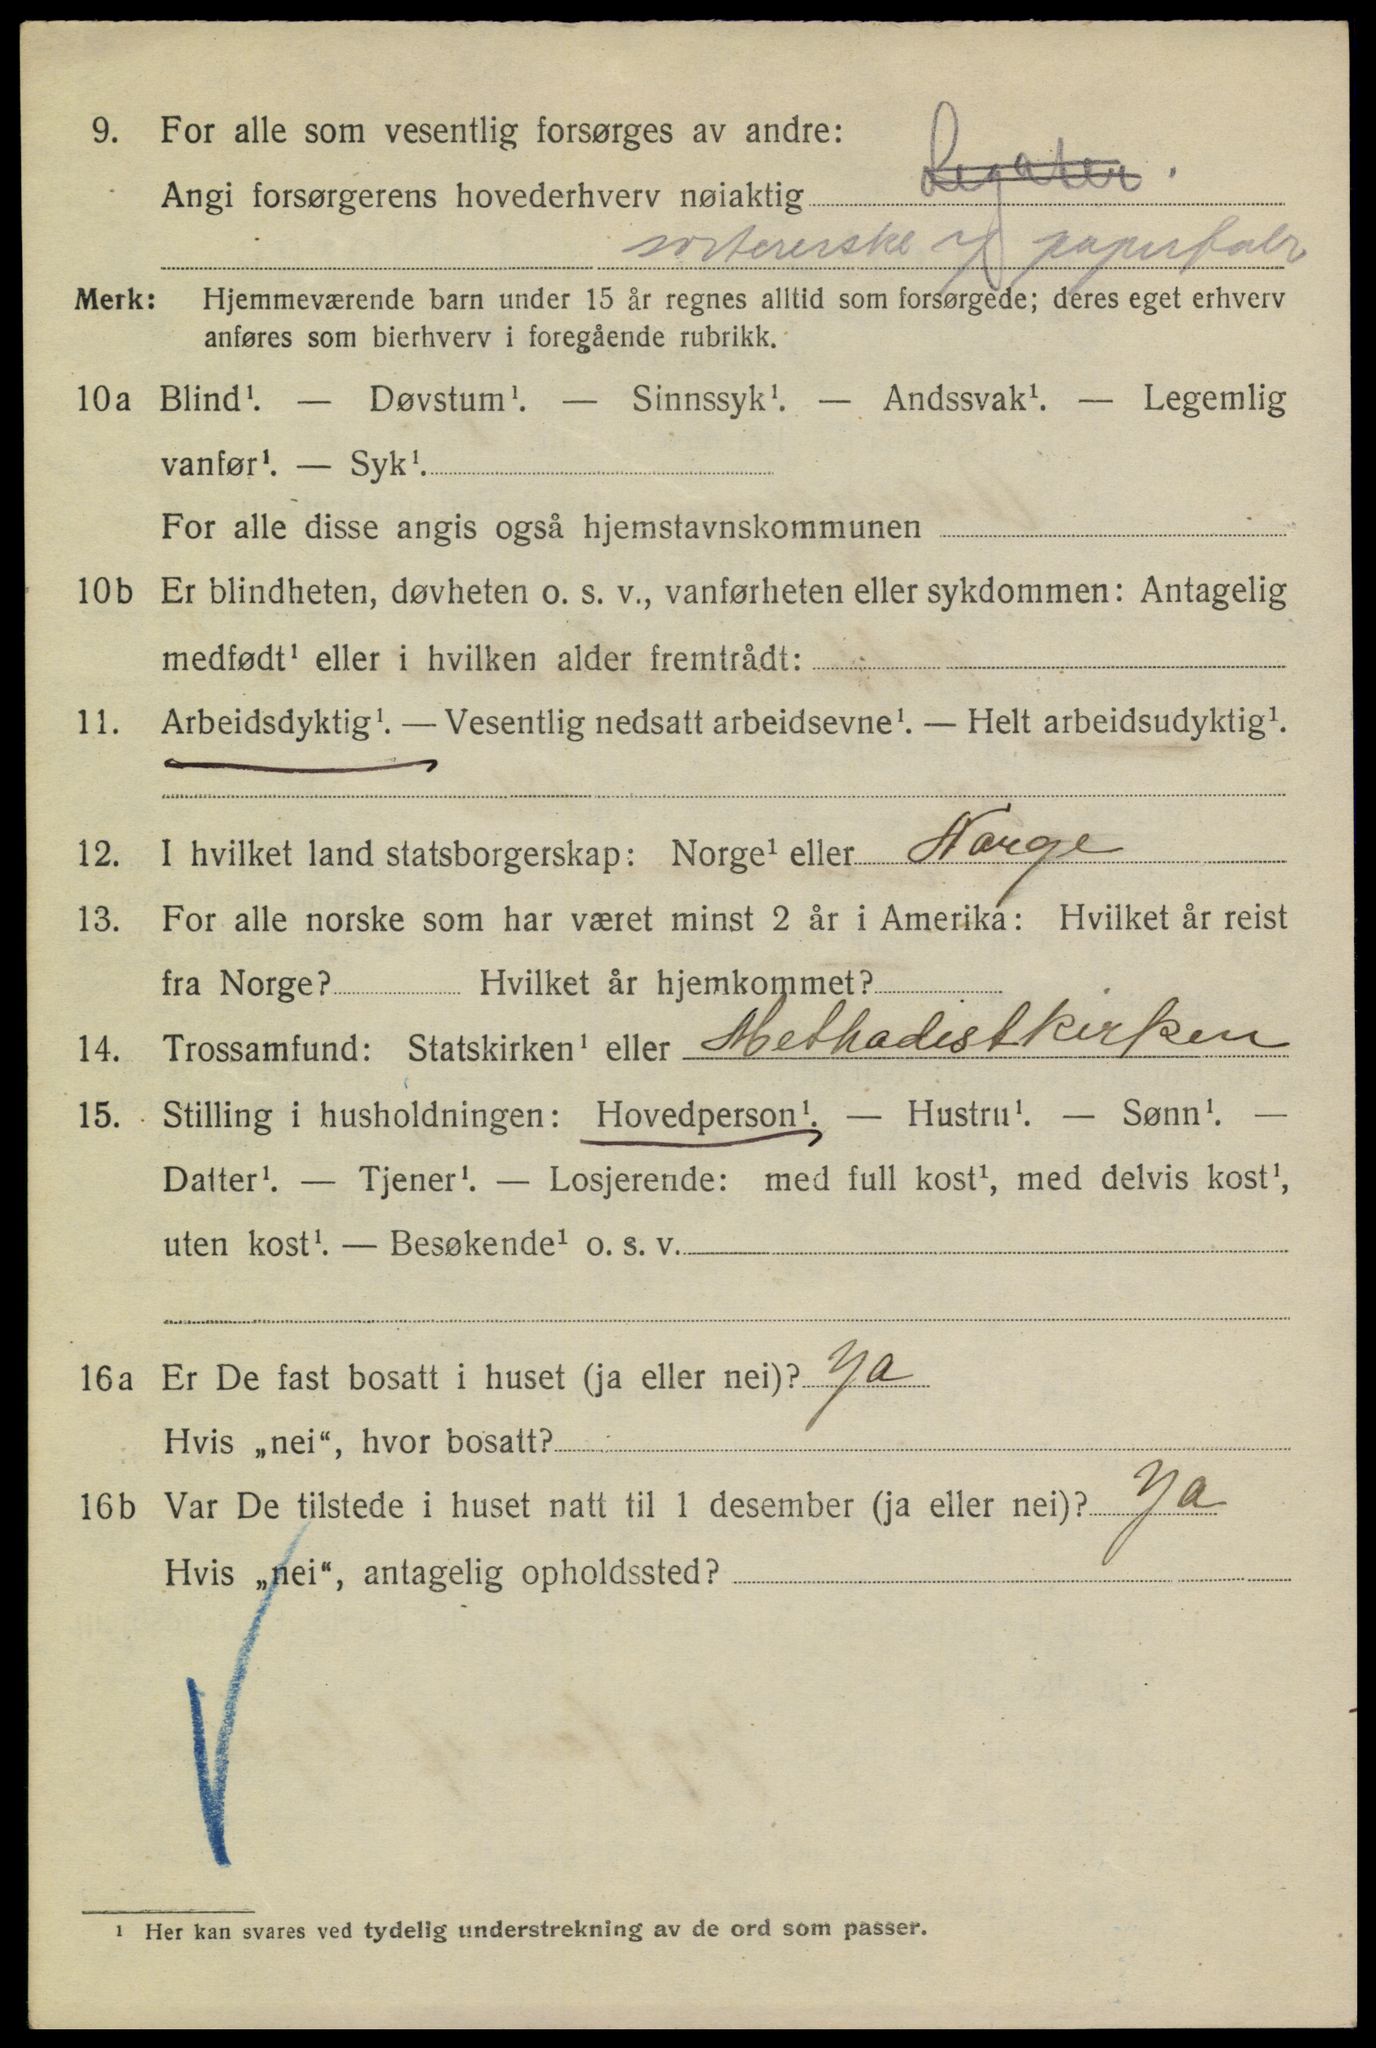 9. For alle som vesentlig forsørges av andre:
Angi forsørgerens hovederhverv nøiaktig Legater.
sortererske paperfabr
Merk: Hjemmeværende barn under 15 år regnes alltid som forsørgede; deres eget erhverv
anføres som bierhverv i foregående rubrikk.
10a Blind¹. — Døvstum¹. — Sinnssyk¹. — Andssvak¹. — Legemlig
vanfør¹. — Syk¹.
For alle disse angis også hjemstavnskommunen
10b Er blindheten, døvheten o. s. v., vanførheten eller sykdommen: Antagelig
medfødt¹ eller i hvilken alder fremtrådt:
11. Arbeidsdyktig¹. — Vesentlig nedsatt arbeidsevne¹. — Helt arbeidsudyktig¹.
12. I hvilket land statsborgerskap: Norge¹ eller Norge
13. For alle norske som har været minst 2 år i Amerika: Hvilket år reist
fra Norge? Hvilket år hjemkommet?
14. Trossamfund: Statskirken¹ eller Methodistkirken
15. Stilling i husholdningen: Hovedperson¹. — Hustru¹. — Sønn¹. —
Datter¹. — Tjener¹. — Losjerende: med full kost¹, med delvis kost¹,
uten kost¹. — Besøkende¹ o. s. v.
16a Er De fast bosatt i huset (ja eller nei)? Ya
Hvis „nei“, hvor bosatt?
16b Var De tilstede i huset natt til 1 desember (ja eller nei)? Ya
Hvis „nei“, antagelig opholdssted?
¹ Her kan svares ved tydelig understrekning av de ord som passer.